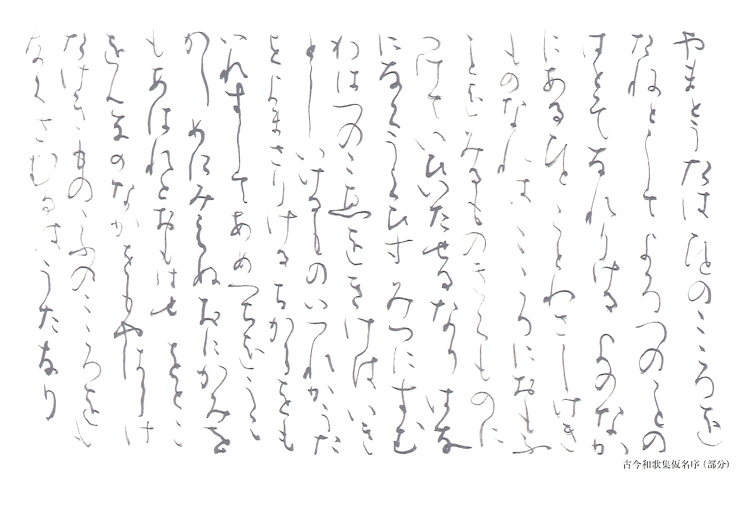 やまとうたはひとのこゝろを
たねとしてよろつのことの
はとそなれりけるよのなか
にあるひとことわさしけき
ものなれはこゝろにおもふ
ことをみるものきくものに
つけていひいたせるなりはな
になくうくひすみつにすむ
かはつのこゑをきけはいき
としいけるものいつれかうた
をよまさりけるちからをも
いれすしてあめつちをうこ
かしめにみえぬおにかみを
もあはれとおもはせをとこ
をんなのなかをもやはらけ
たけきものゝふのこゝろをも
なくさむるはうたなり
古今和歌集仮名序（部分）